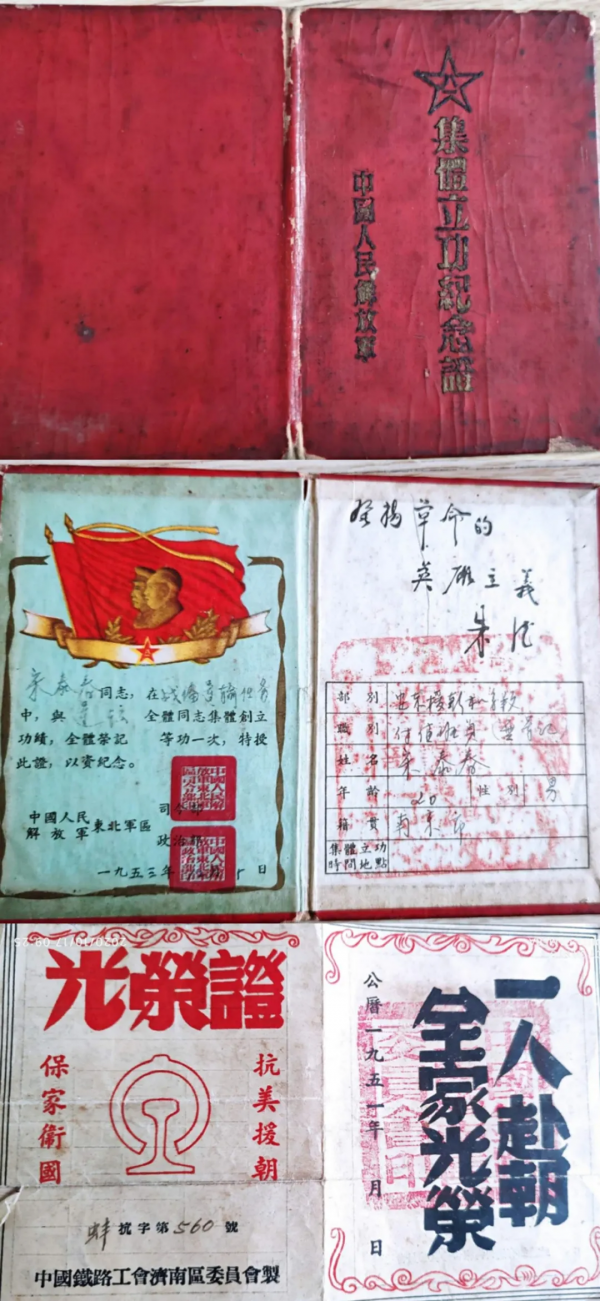 集體立功紀念證
中國人民解放軍
宋泰春同志，在戰備運輸任务
中，與
全體同志集體創立
功績，全體榮記 等功一次，特授
此證，以資紀念。
中國人民
解放軍東北軍區
司令部
政治部
一九五三年 日
發揚革命的
英雄主義
朱德
部別
職別
姓名 宋泰春
年齡 20 性別 男
籍貫 南京市
集體立功
時間地點
光榮證
抗美援朝
保家衛國
蚌抗字第560號
中國鐵路工會濟南區委員會製
一人赴朝
全家光榮
公曆一九五一年 月 日